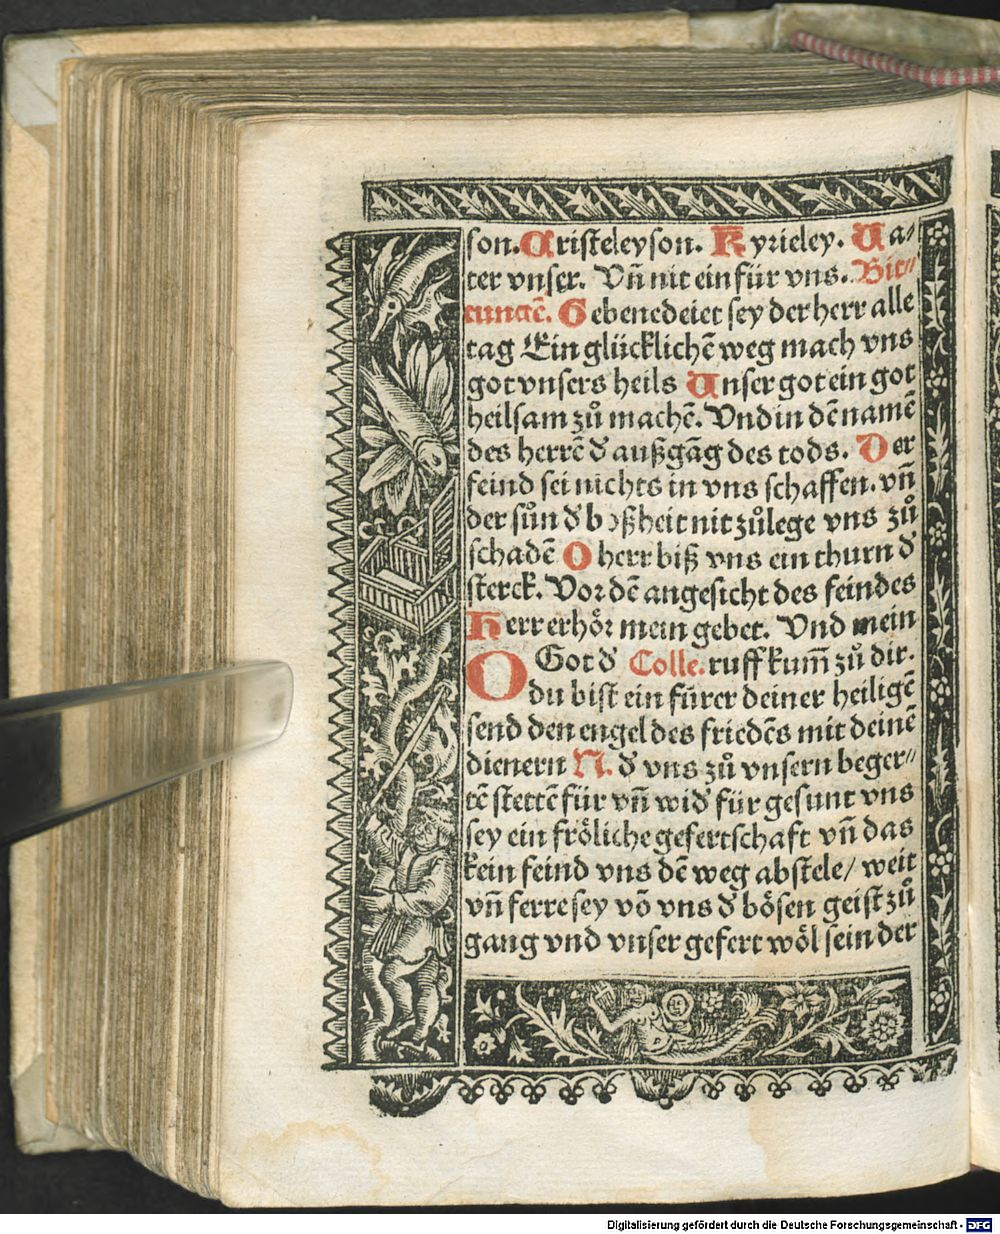 son. Cristeleyson. Kyrieley. Va⸗
ter vnser. Vñ nit ein für vns. Bit⸗
tungē. Gebenedeiet sey der herr alle
tag Ein glücklichē weg mach vns
got vnsers heils Vnser got ein got
heilsam zů machē. Vnd in dē namē
des herrē d' außgāg des tods. Der
feind sei nichts in vns schaffen. vñ
der sůn d' boßheit nit zůlege vns zů
schadē O herr biß vns ein thurn d'
sterck. Vor dē angesicht des feindes
Herr erhör mein gebet. Vnd mein
O Got d' Colle. ruff kum̄ zů dir.
du bist ein fürer deiner heiligē
send den engel des friedēs mit deinē
dienern N. d' vns zů vnsern beger⸗
tē stettē für vñ wid' für gesunt vns
sey ein fröliche gefertschaft vñ das
kein feind vns dē weg abstele/ weit
vñ ferre sey vō vns d' bösen geist zů
gang vnd vnser gefert wöl sein der
Digitalisierung gefördert durch die Deutsche Forschungsgemeinschaft - DFG